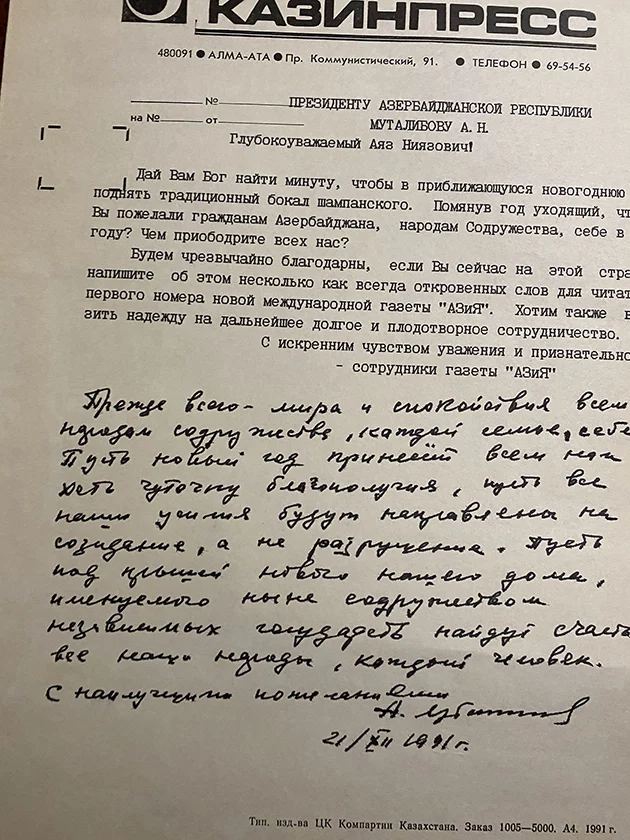 КАЗИНПРЕСС
480091 ● АЛМА-АТА ● Пр. Коммунистический, 91. ● ТЕЛЕФОН ● 69-54-56
№ ПРЕЗИДЕНТУ АЗЕРБАЙДЖАНСКОЙ РЕСПУБЛИКИ
на № от МУТАЛИБОВУ А. Н.
Глубокоуважаемый Аяз Ниязович!
Дай Вам Бог найти минуту, чтобы в приближающуюся новогоднюю
поднять традиционный бокал шампанского. Помянув год уходящий, чт
Вы пожелали гражданам Азербайджана, народам Содружества, себе в
году? Чем приободрите всех нас?
Будем чрезвычайно благодарны, если Вы сейчас на этой стра
напишите об этом несколько как всегда откровенных слов для читат
первого номера новой международной газеты "АЗиЯ". Хотим также в
зить надежду на дальнейшее долгое и плодотворное сотрудничество.
С искренним чувством уважения и признательно
- сотрудники газеты "АЗиЯ"
Прежде всего - мира и спокойствия всем
народам содружества, каждой семье, себе
Пусть новый год принесёт всем нам
хоть чуточку благополучия, пусть все
наши усилия будут направлены на
созидание, а не разрушение. Пусть
под крышей нового нашего дома,
именуемого ныне содружеством
независимых государств найдут счасть
все наши народы, каждый человек.
С наилучшими пожеланиями
А.
21/XII 1991г.
Тип. изд-ва ЦК Компартии Казахстана. Заказ 1005—5000. А4. 1991 г.